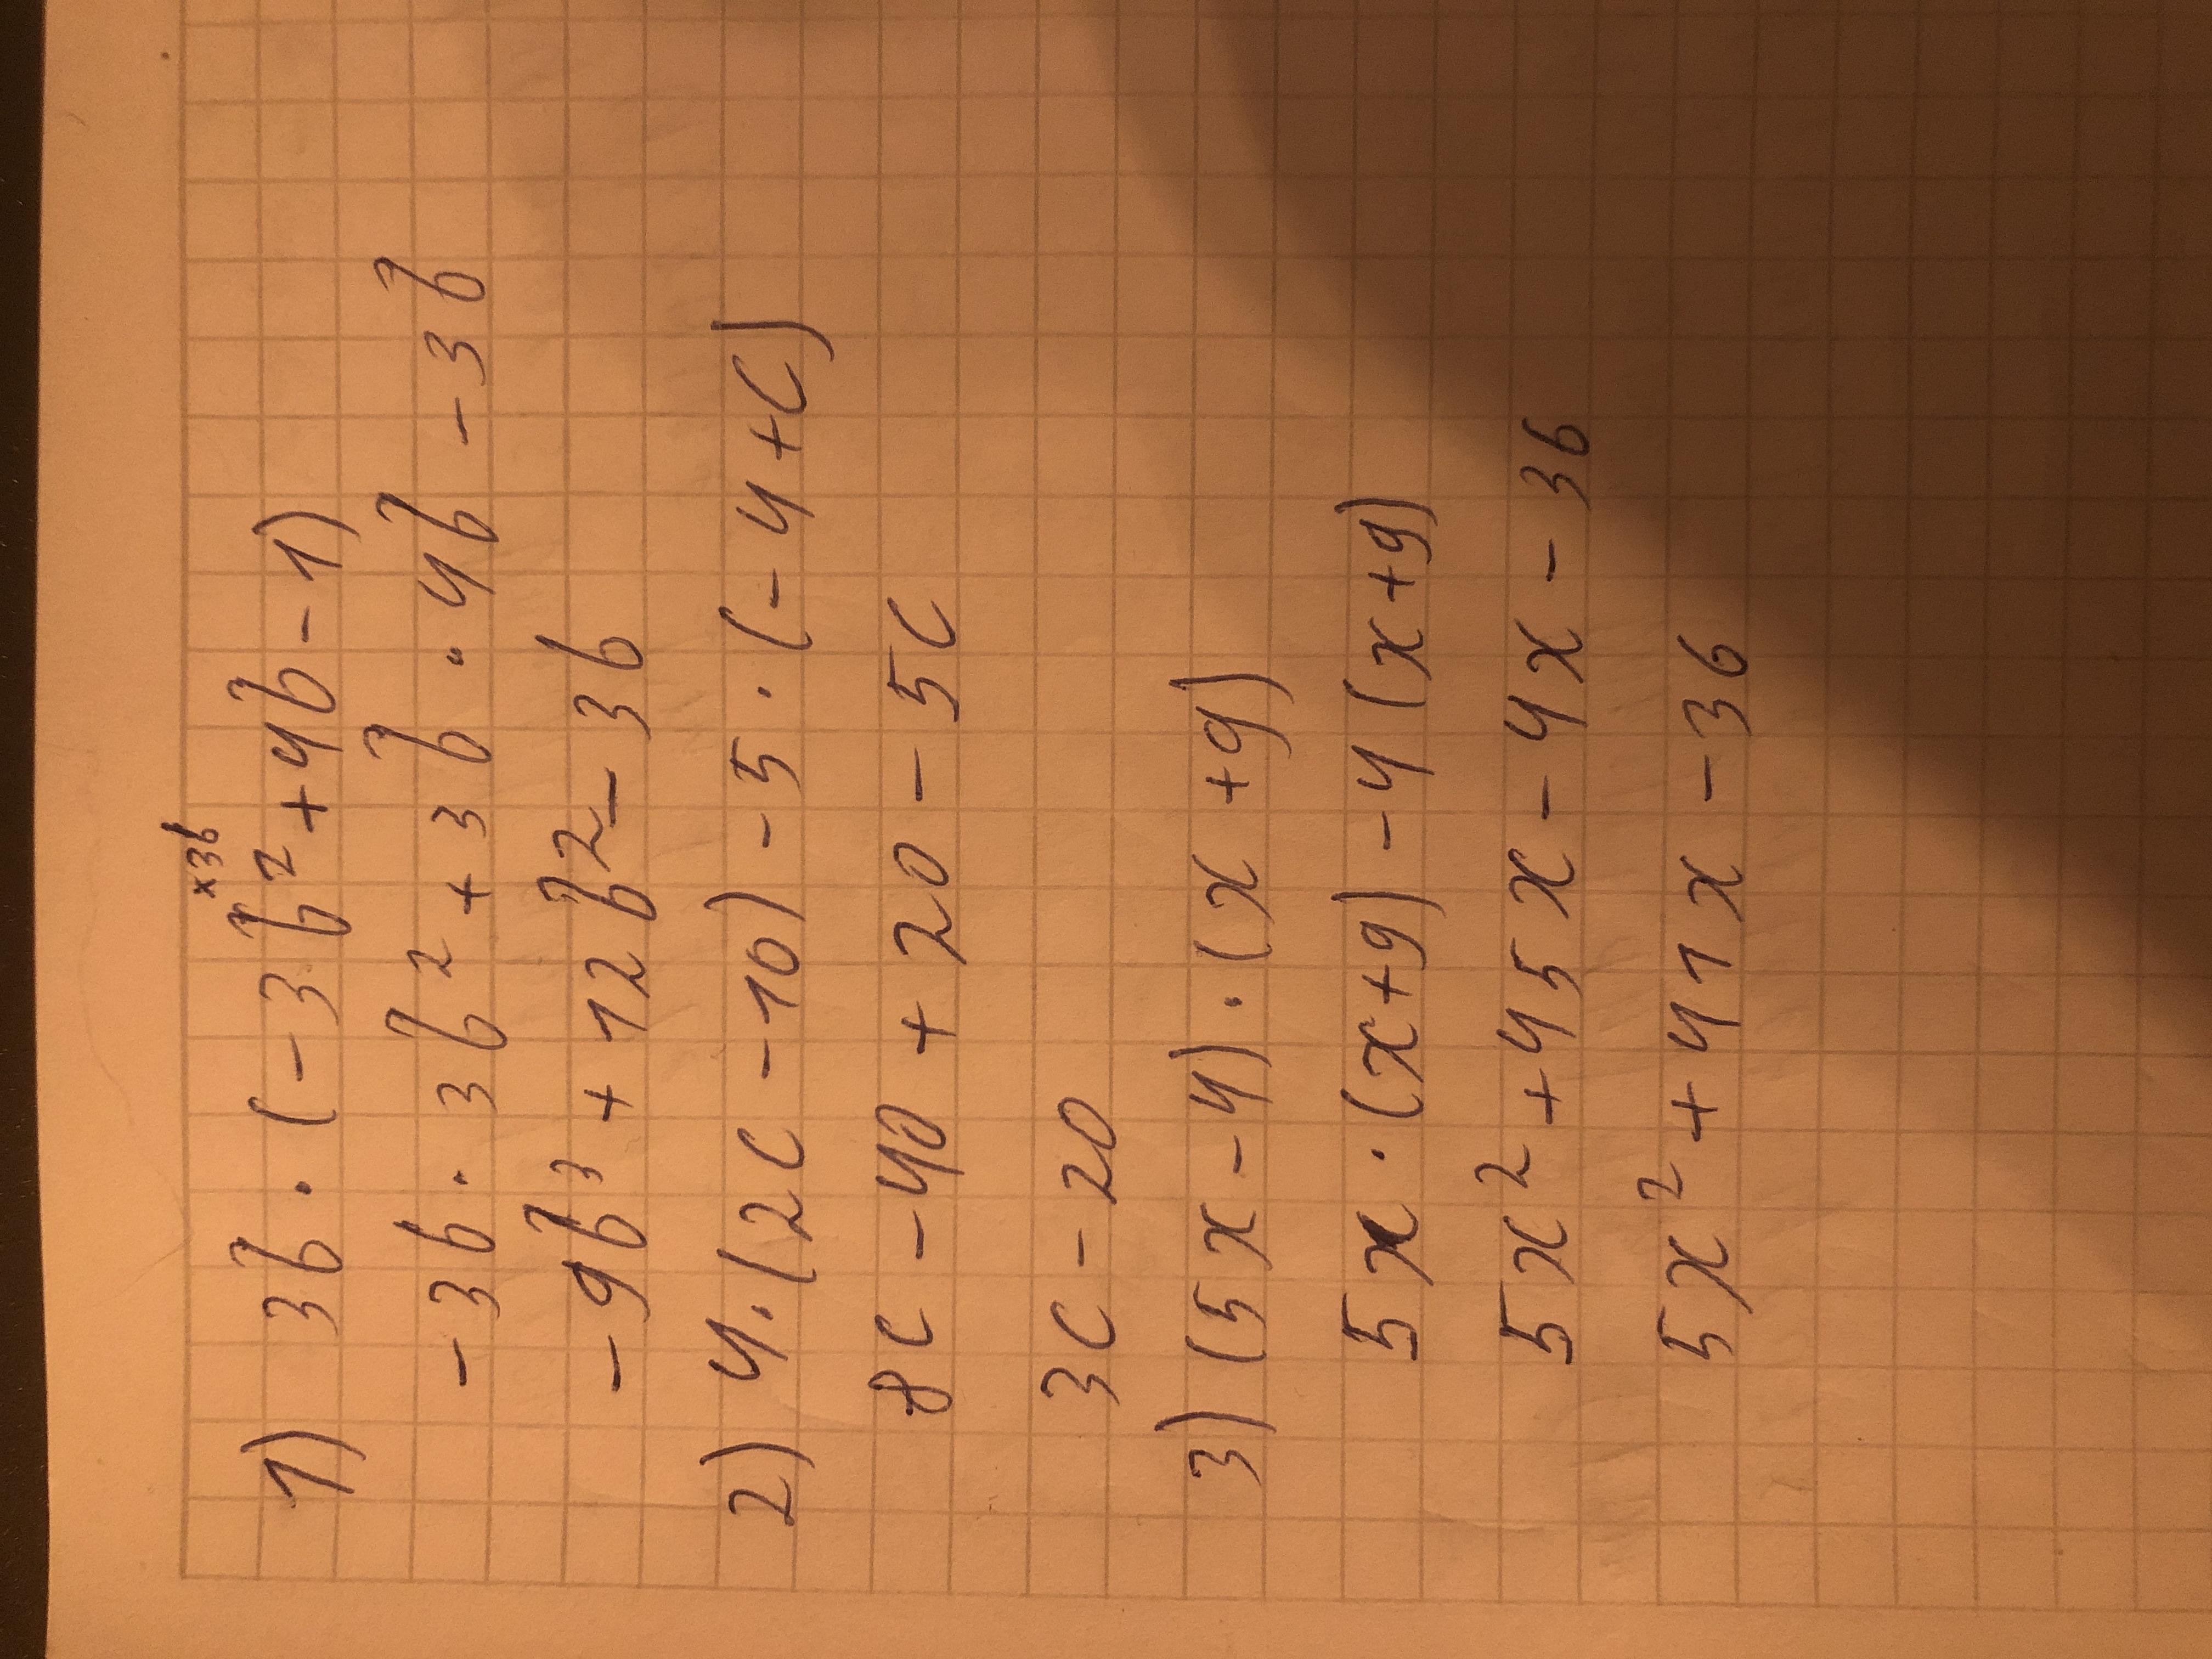 ×3b
1) 3b · (-3b² + 4b - 1)
-3b · 3b² + 3b · 4b - 3b
-9b³ + 12b² - 3b
2) 4 · (2c - 10) - 5 · (-4 + c)
8c - 40 + 20 - 5c
3c - 20
3) (5x - 4) · (x + 9)
5x · (x + 9) - 4 (x + 9)
5x² + 45x - 4x - 36
5x² + 41x - 36